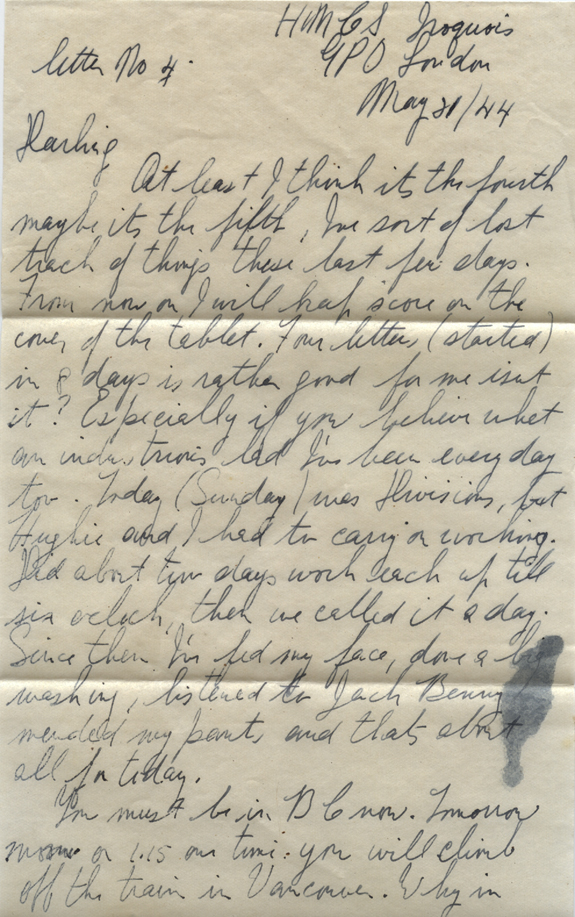 HMCS Iroquois
GPO London
letter No 4.
May 21/44
Darling
At least I think its the fourth
maybe its the fifth, Ive sort of lost
track of things these last few days.
From now on I will keep score on the
cover of the tablet. Four letters (started)
in 8 days is rather good for me isnt
it? Especially if you believe what
an industrious lad I've been every day
too. Today (Sunday) was Divisions, but
Hughie and I had to carry on working.
Did about two days work each up till
six oclock, then we called it a day.
Since then I've fed my face, done a big
washing, listened to Jack Benny
mended my pants and thats about
all for today.
You must be in BC now. Tomorrow
or 1.15 our time. you will climb
off the train in Vancouver. Why in